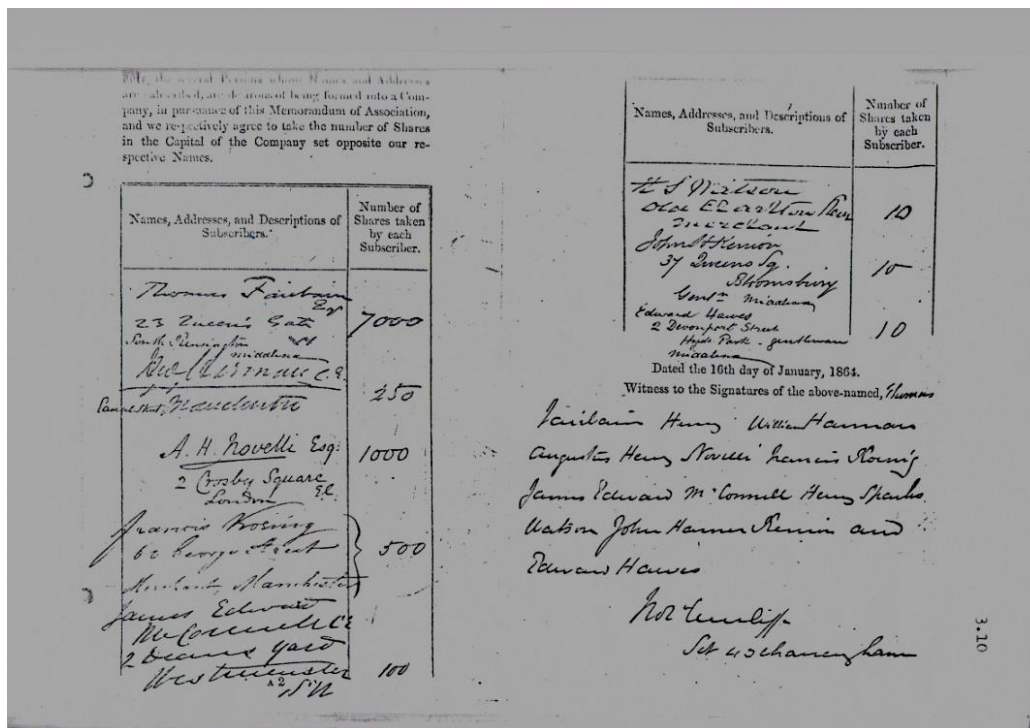 We, the several Persons whose Names and Addresses
are subscribed, are desirous of being formed into a Com-
pany, in pursuance of this Memorandum of Association,
and we respectively agree to take the number of Shares
in the Capital of the Company set opposite our re-
spective Names.
Names, Addresses, and Descriptions of
Subscribers.
Number of
Shares taken
by each
Subscriber.
Thomas Fairbairn
Esq
23 Queen's Gate 7000
South Kensington
Middlesex
Harman C.E.
Manchester 250
A. H. Novelli Esq. 1000
2 Crosby Square
London E.C.
Francis
George Street 500
Merchant, Manchester
James Edward
McConnell CE
2 Deans Yard
Westminster 100
SW
Names, Addresses, and Descriptions of
Subscribers.
Number of
Shares taken
by each
Subscriber.
H S Watson
Old Charlton Kent 10
Merchant
John H Kenion
37 Queens Sq. 10
Bloomsbury
Gentn Middlesex
Edward Hawes
2 Devonport Street 10
Hyde Park - gentleman
Middlesex
Dated the 16th day of January, 1864.
Witness to the Signatures of the above-named, Thomas
Fairbairn Henry William Harman
Augustus Henry Novelli Francis
James Edward McConnell Henry Sparks
Watson John Harmer Kenion and
Edward Hawes
3.10